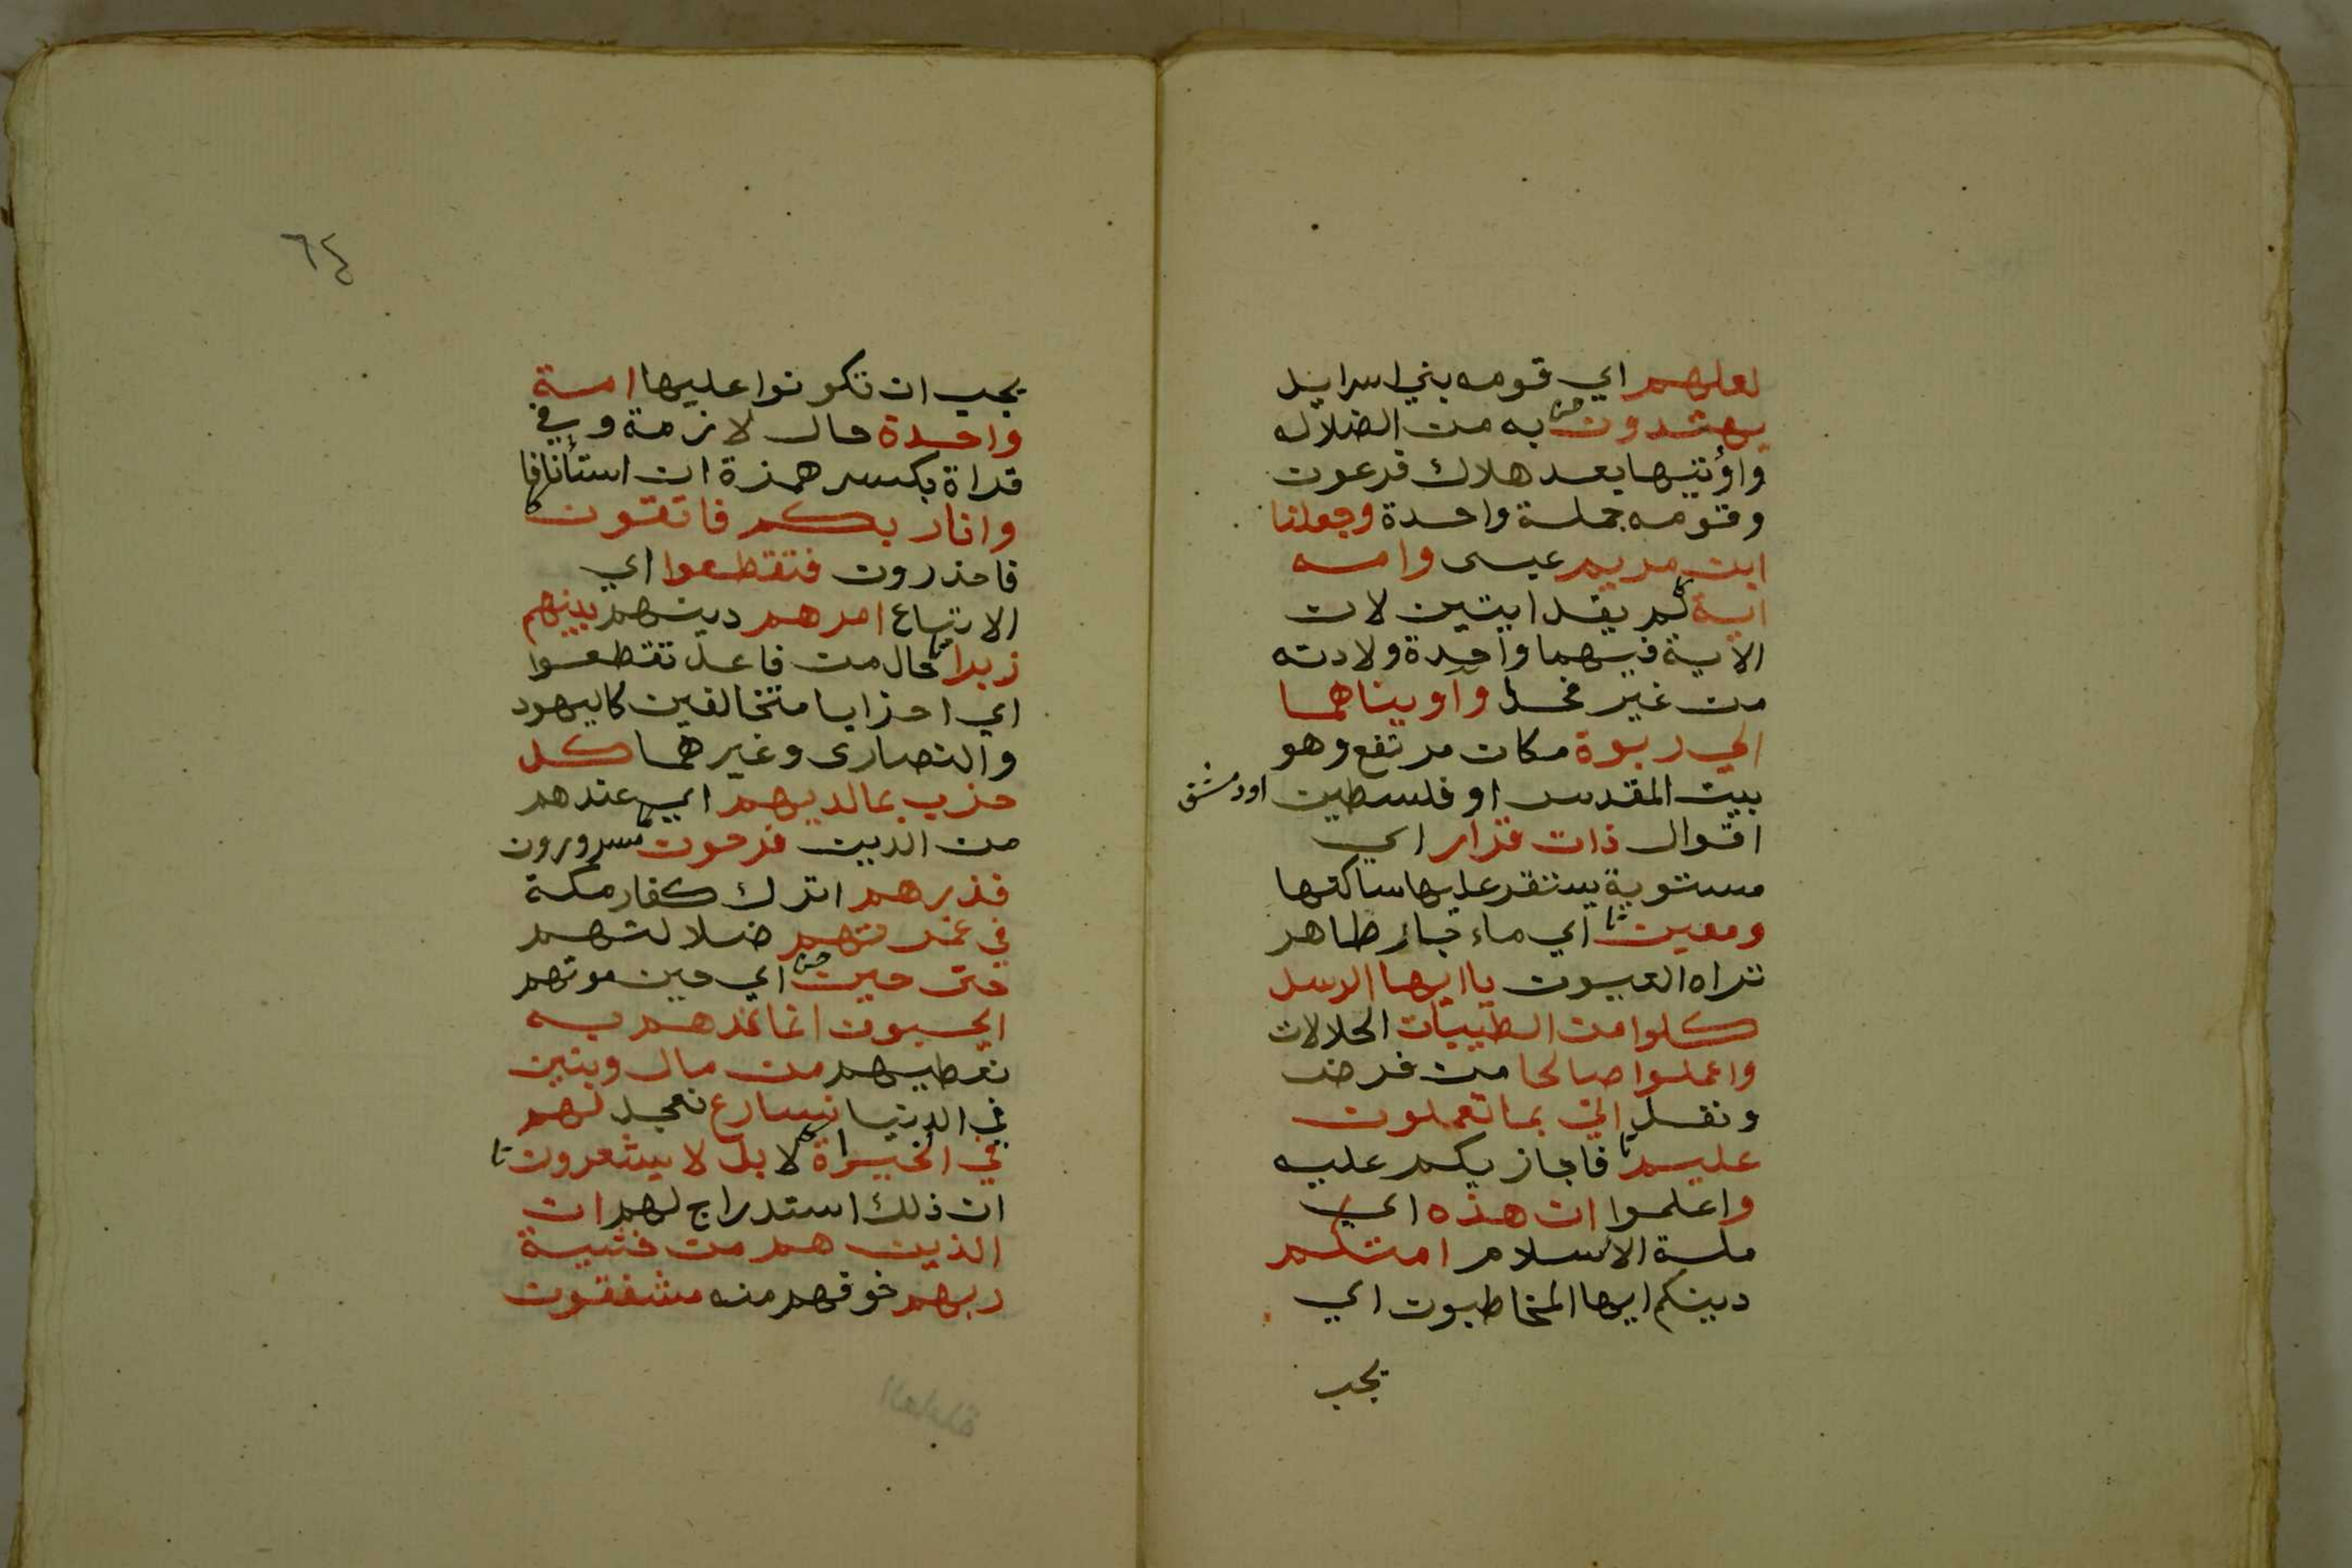 لعلهم اي قومه بني اسرايل
يهتدون به من الضلاله
واؤتيها بعد هلاك فرعون
وقومه جملة واحدة وجعلنا
ابن مريم عيسى وامه
اية لم يقل ايتين لان
الاية فيهما واحدة ولادته
من غير فحل واويناهما
الي ربوة مكان مرتفع وهو
بيت المقدس او فلسطين او دمشق
اقوال ذات قرار اي
مستوية يستقر عليها ساكنها
ومعين اي ماء جار ظاهر
تراه العيون ياايها الرسل
كلوا من الطيبات الحلالات
واعملوا صالحا من فرض
ونفل اني بما تعملون
عليم فاجازيكم عليه
واعلموا ان هذه اي
ملة الاسلام امتكم
دينكم ايها المخاطبون اي
يجب
٦٤
يجب ان تكونوا عليها امة
واحدة حال لازمة وفي
قراة بكسر همزة ان استأنافا
وانا ربكم فاتقون
فاحذرون فتقطعوا اي
الاتباع امرهم دينهم بينهم
زبرا حال من فاعل تقطعوا
اي احزابا متخالفين كاليهود
والنصارى وغيرهما كل
حزب بمالديهم اي عندهم
من الدين فرحون مسرورون
فذرهم اترك كفار مكة
في غمرتهم ضلالتهم
حتى حين اي حين موتهم
ايحسبون انما نمدهم به
نعطيهم من مال وبنين
في الدنيا نسارع نعجل لهم
في الخيراة لا بل لا يشعرون
ان ذلك استدراج لهم ان
الذين هم من خشية
ربهم خوفهم منه مشفقون